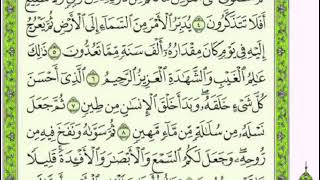 أَفَلَا تَتَذَكَّرُونَ ٤ يُدَبِّرُ الْأَمْرَ مِنَ السَّمَاءِ إِلَى الْأَرْضِ ثُمَّ يَعْرُجُ
إِلَيْهِ فِي يَوْمٍ كَانَ مِقْدَارُهُ أَلْفَ سَنَةٍ مِمَّا تَعُدُّونَ ٥ ذَٰلِكَ
عَالِمُ الْغَيْبِ وَالشَّهَادَةِ الْعَزِيزُ الرَّحِيمُ ٦ الَّذِي أَحْسَنَ
كُلَّ شَيْءٍ خَلَقَهُ وَبَدَأَ خَلْقَ الْإِنْسَانِ مِنْ طِينٍ ٧ ثُمَّ جَعَلَ
نَسْلَهُ مِنْ سُلَالَةٍ مِنْ مَاءٍ مَهِينٍ ٨ ثُمَّ سَوَّاهُ وَنَفَخَ فِيهِ مِنْ
رُوحِهِ وَجَعَلَ لَكُمُ السَّمْعَ وَالْأَبْصَارَ وَالْأَفْئِدَةَ قَلِيلًا